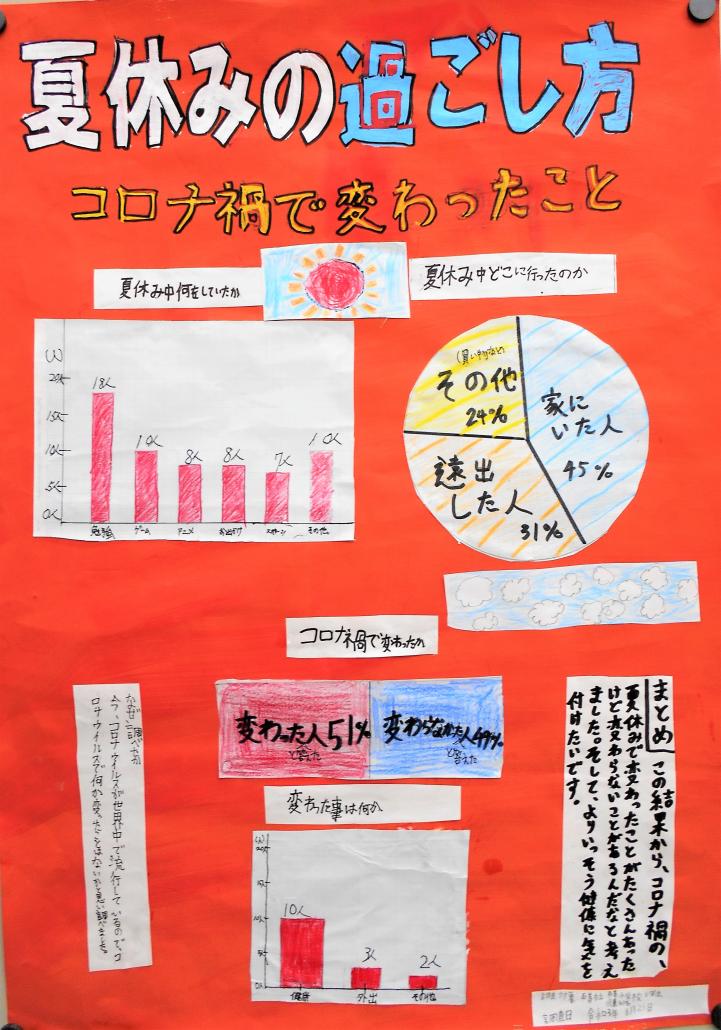 夏休みの過ごし方
コロナ禍で変わったこと
夏休み中何をしていたか
夏休み中どこに行ったのか
(人)
20人
15人
10人
5人
0人
18人
10人
8人
8人
7人
10人
勉強
ゲーム
アニメ
お出かけ
スポーツ
その他
その他
24%
家に
いた人
45%
遠出
した人
31%
コロナ禍で変わったか
変わった人51%
と答えた
変わらなかった人49%
と答えた
変わった事は何か
(人)
20人
15人
10人
5人
0人
10人
3人
2人
健康
外出
その他
なぜ調べたか
今、コロナウイルスが世界中で流行しているので、コ
ロナウイルスで何か変ったことはないかと思い調べました。
まとめ この結果から、コロナ禍の、
夏休みで変わったことがたくさんあった
けど変わらないことがあるんだなと考え
ました。そして、よりいっそう健康に気を
付けたいです。
令和3年8月21日